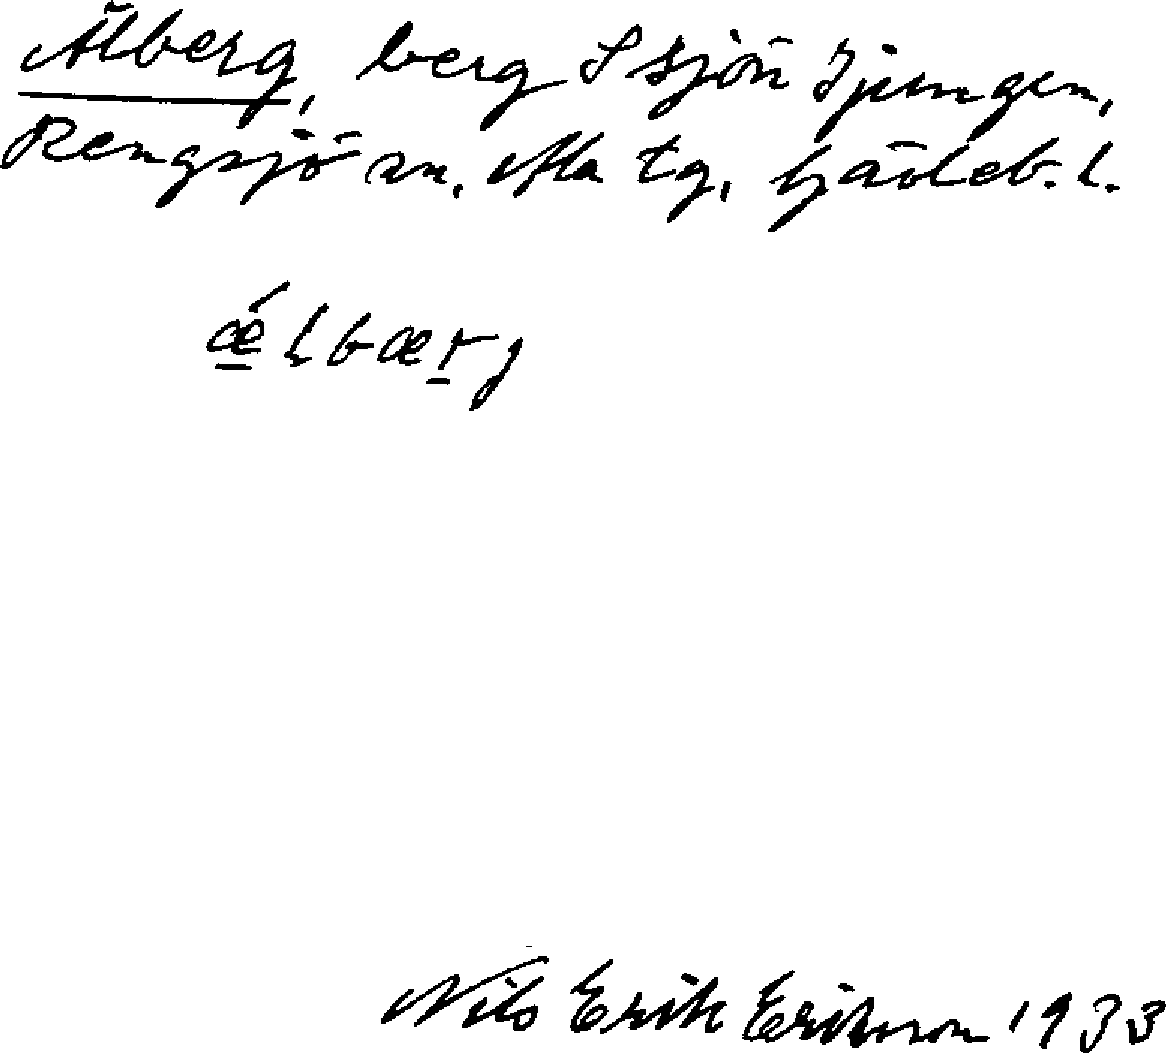 Älberg, berg S sjön Tjungen,
Rengsjö sn, Ala tg, Gävleb. l.
ǽlbærg
Nils Erik Eriksson 1933